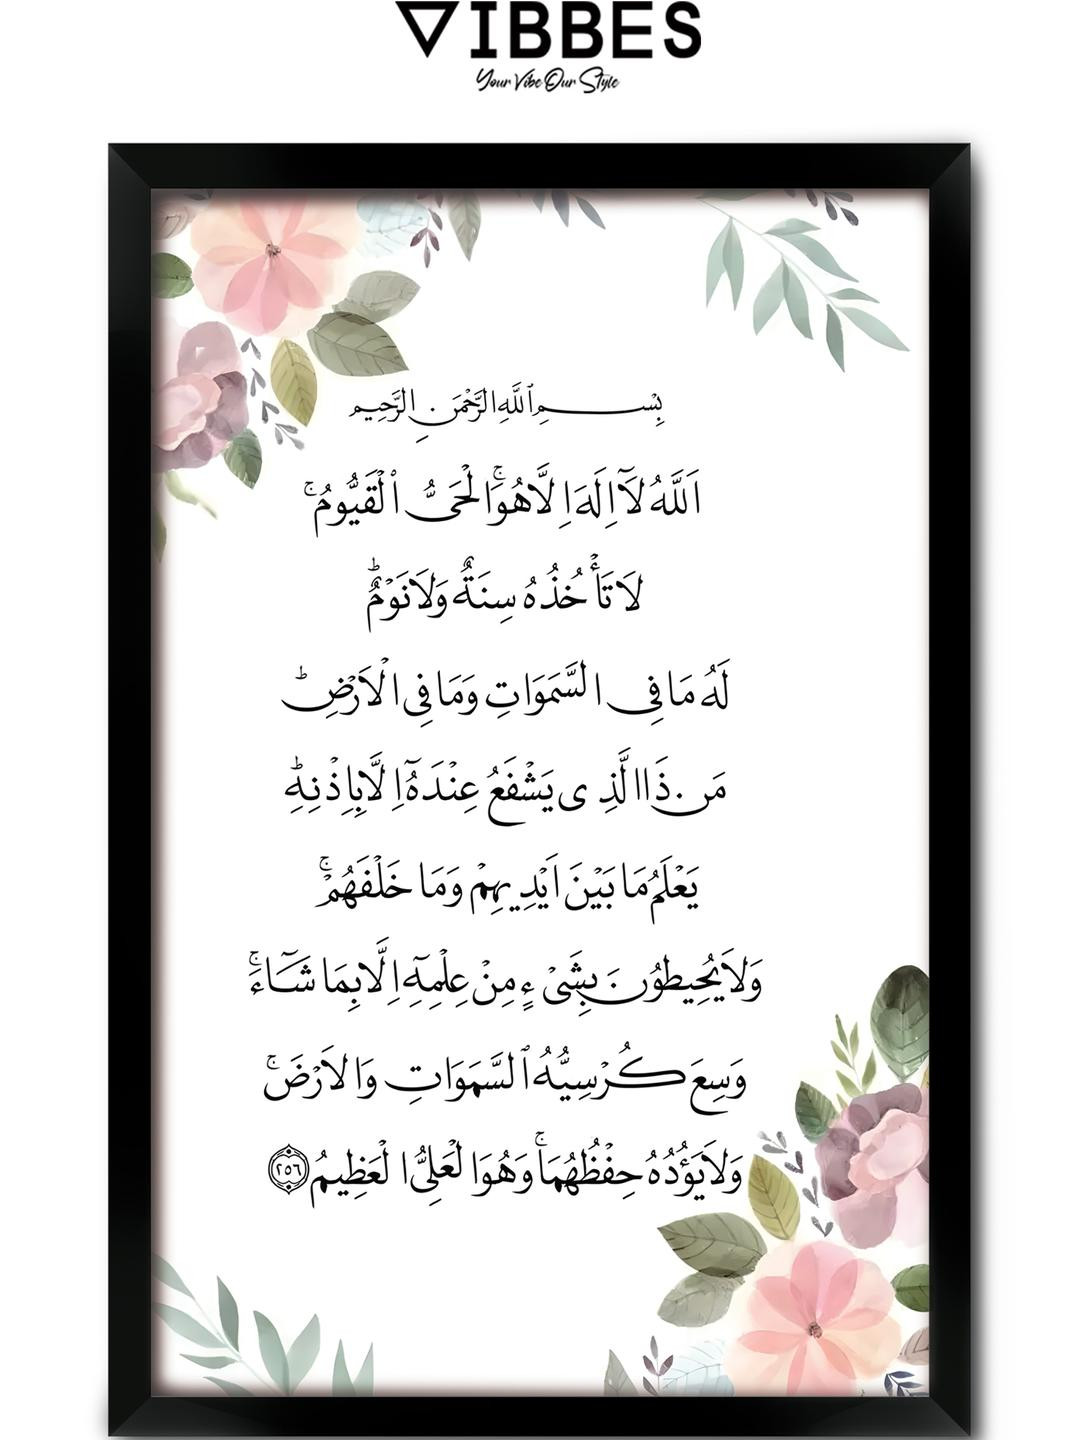 VIBBES
Your Vibe Our Style
بِسْمِ ٱللَّهِ الرَّحْمَنِ الرَّحِيمِ
اَللَّهُ لَآ اِلَهَ اِلَّا هُوَۚ الْحَىُّ ٱلْقَيُّومُۚ
لَا تَأْخُذُهُ سِنَةٌ وَلَا نَوْمٌؕ
لَهُ مَا فِى السَّمَوَاتِ وَمَا فِى الْاَرْضِؕ
مَن ذَا الَّذِى يَشْفَعُ عِنْدَهُٓ اِلَّا بِاِذْنِهِؕ
يَعْلَمُ مَا بَيْنَ اَيْدِيهِمْ وَمَا خَلْفَهُمْۚ
وَلَا يُحِيطُوُنَ بِشَىْءٍ مِنْ عِلْمِهِٓ اِلَّا بِمَا شَآءَۚ
وَسِعَ كُرْسِيُّهُ ٱلسَّمَوَاتِ وَالاَرْضَۚ
وَلَا يَؤُدُهُ حِفْظُهُمَاۚ وَهُوَ الْعَلِىُّ الْعَظِيمُ ٢٥٦